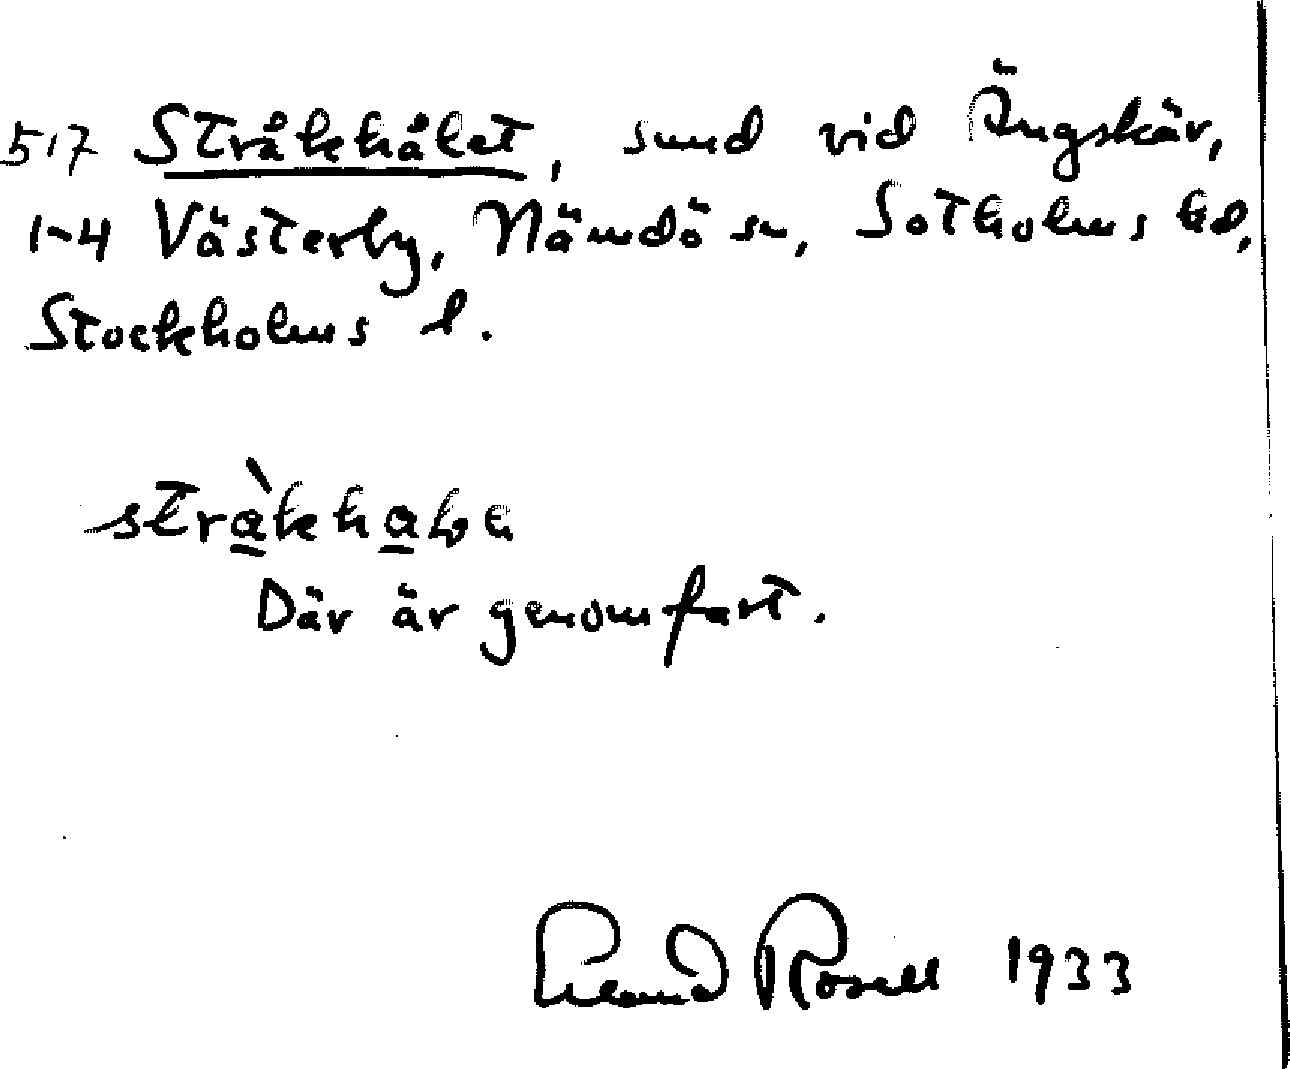 517 Stråkhålet, sund vid Ängskär,
1-4 Västerby, Nämdö sn, Sotholms hd,
Stockholms l.
Där är genomfart.
Rosell 1933